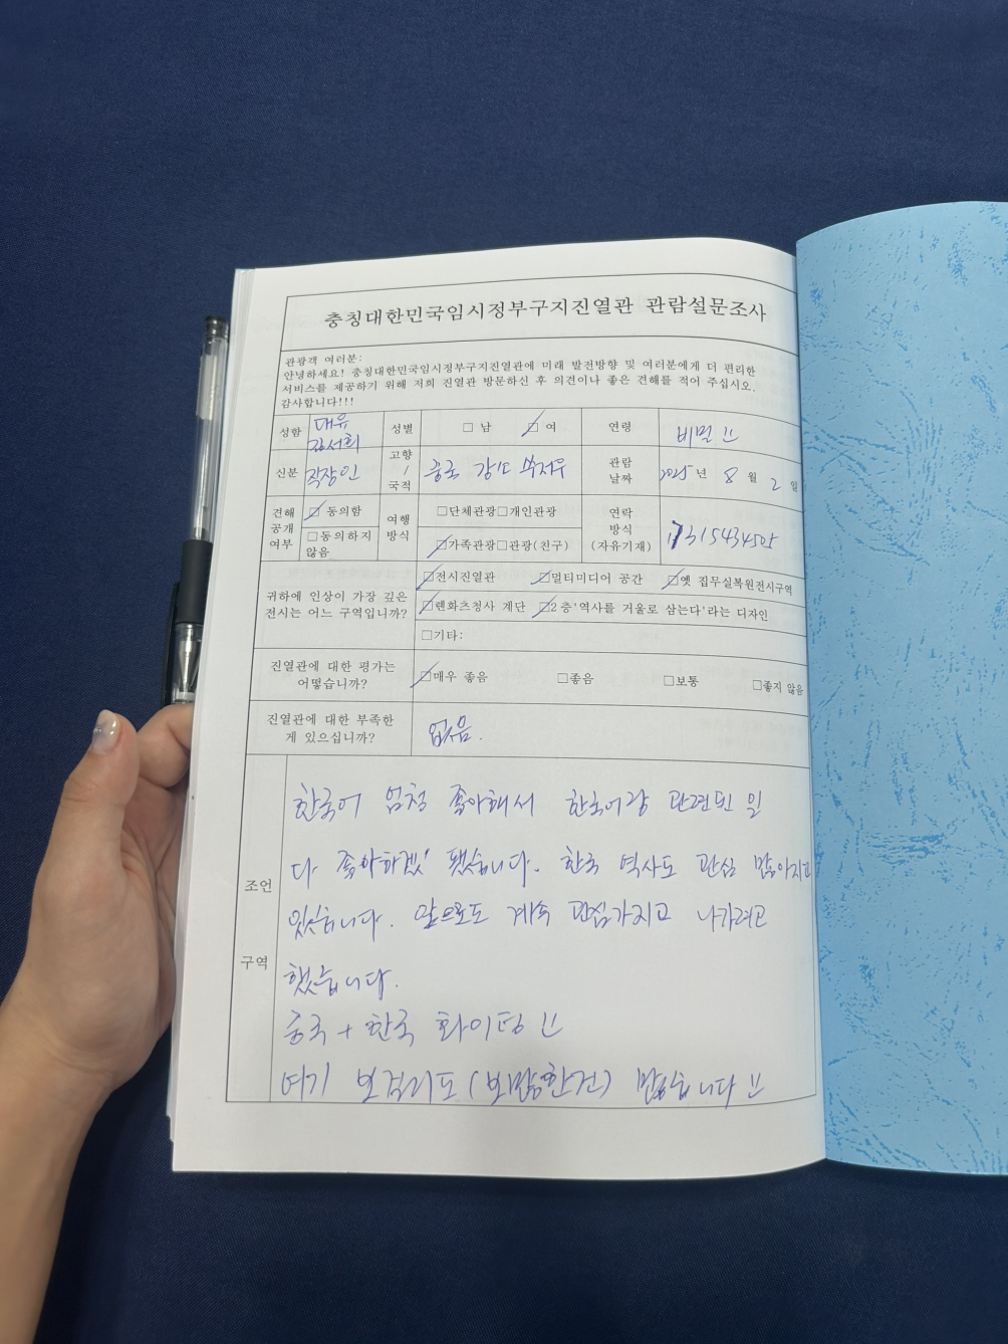 충칭대한민국임시정부구지진열관 관람설문조사
관광객 여러분:
안녕하세요! 충칭대한민국임시정부구지진열관에 미래 발전방향 및 여러분에게 더 편리한
서비스를 제공하기 위해 저희 진열관 방문하신 후 의견이나 좋은 견해를 적어 주십시오.
감사합니다!!!
성함 대유 김서희 성별 □ 남 □ 여 연령 비밀 !!
신분 직장인 고향 / 국적 중국 관람 날짜 2025년 8 월 2 일
견해 공개 여부 □ 동의함 □동의하지 않음 여행 방식 □단체관광□개인관광 □가족관광□관광(친구) 연락 방식 (자유기재) 17315434505
귀하에 인상이 가장 깊은 전시는 어느 구역입니까?
□전시진열관 □멀티미디어 공간 □옛 집무실복원전시구역
□렌화츠청사 계단 □2층'역사를 거울로 삼는다'라는 디자인
□기타:
진열관에 대한 평가는 어떻습니까? □매우 좋음 □좋음 □보통 □좋지 않음
진열관에 대한 부족한 게 있으십니까? 없음.
조언 구역
한국어 엄청 좋아해서 한국어랑 관련된 일
다 좋아하겠 됐습니다. 한국 역사도 관심 많아지고
있습니다. 앞으로도 계속 관심가지고 나가려고
했습니다.
중국 + 한국 화이팅 !!
여기 볼걸리도 (볼만한건) 많습니다 !!